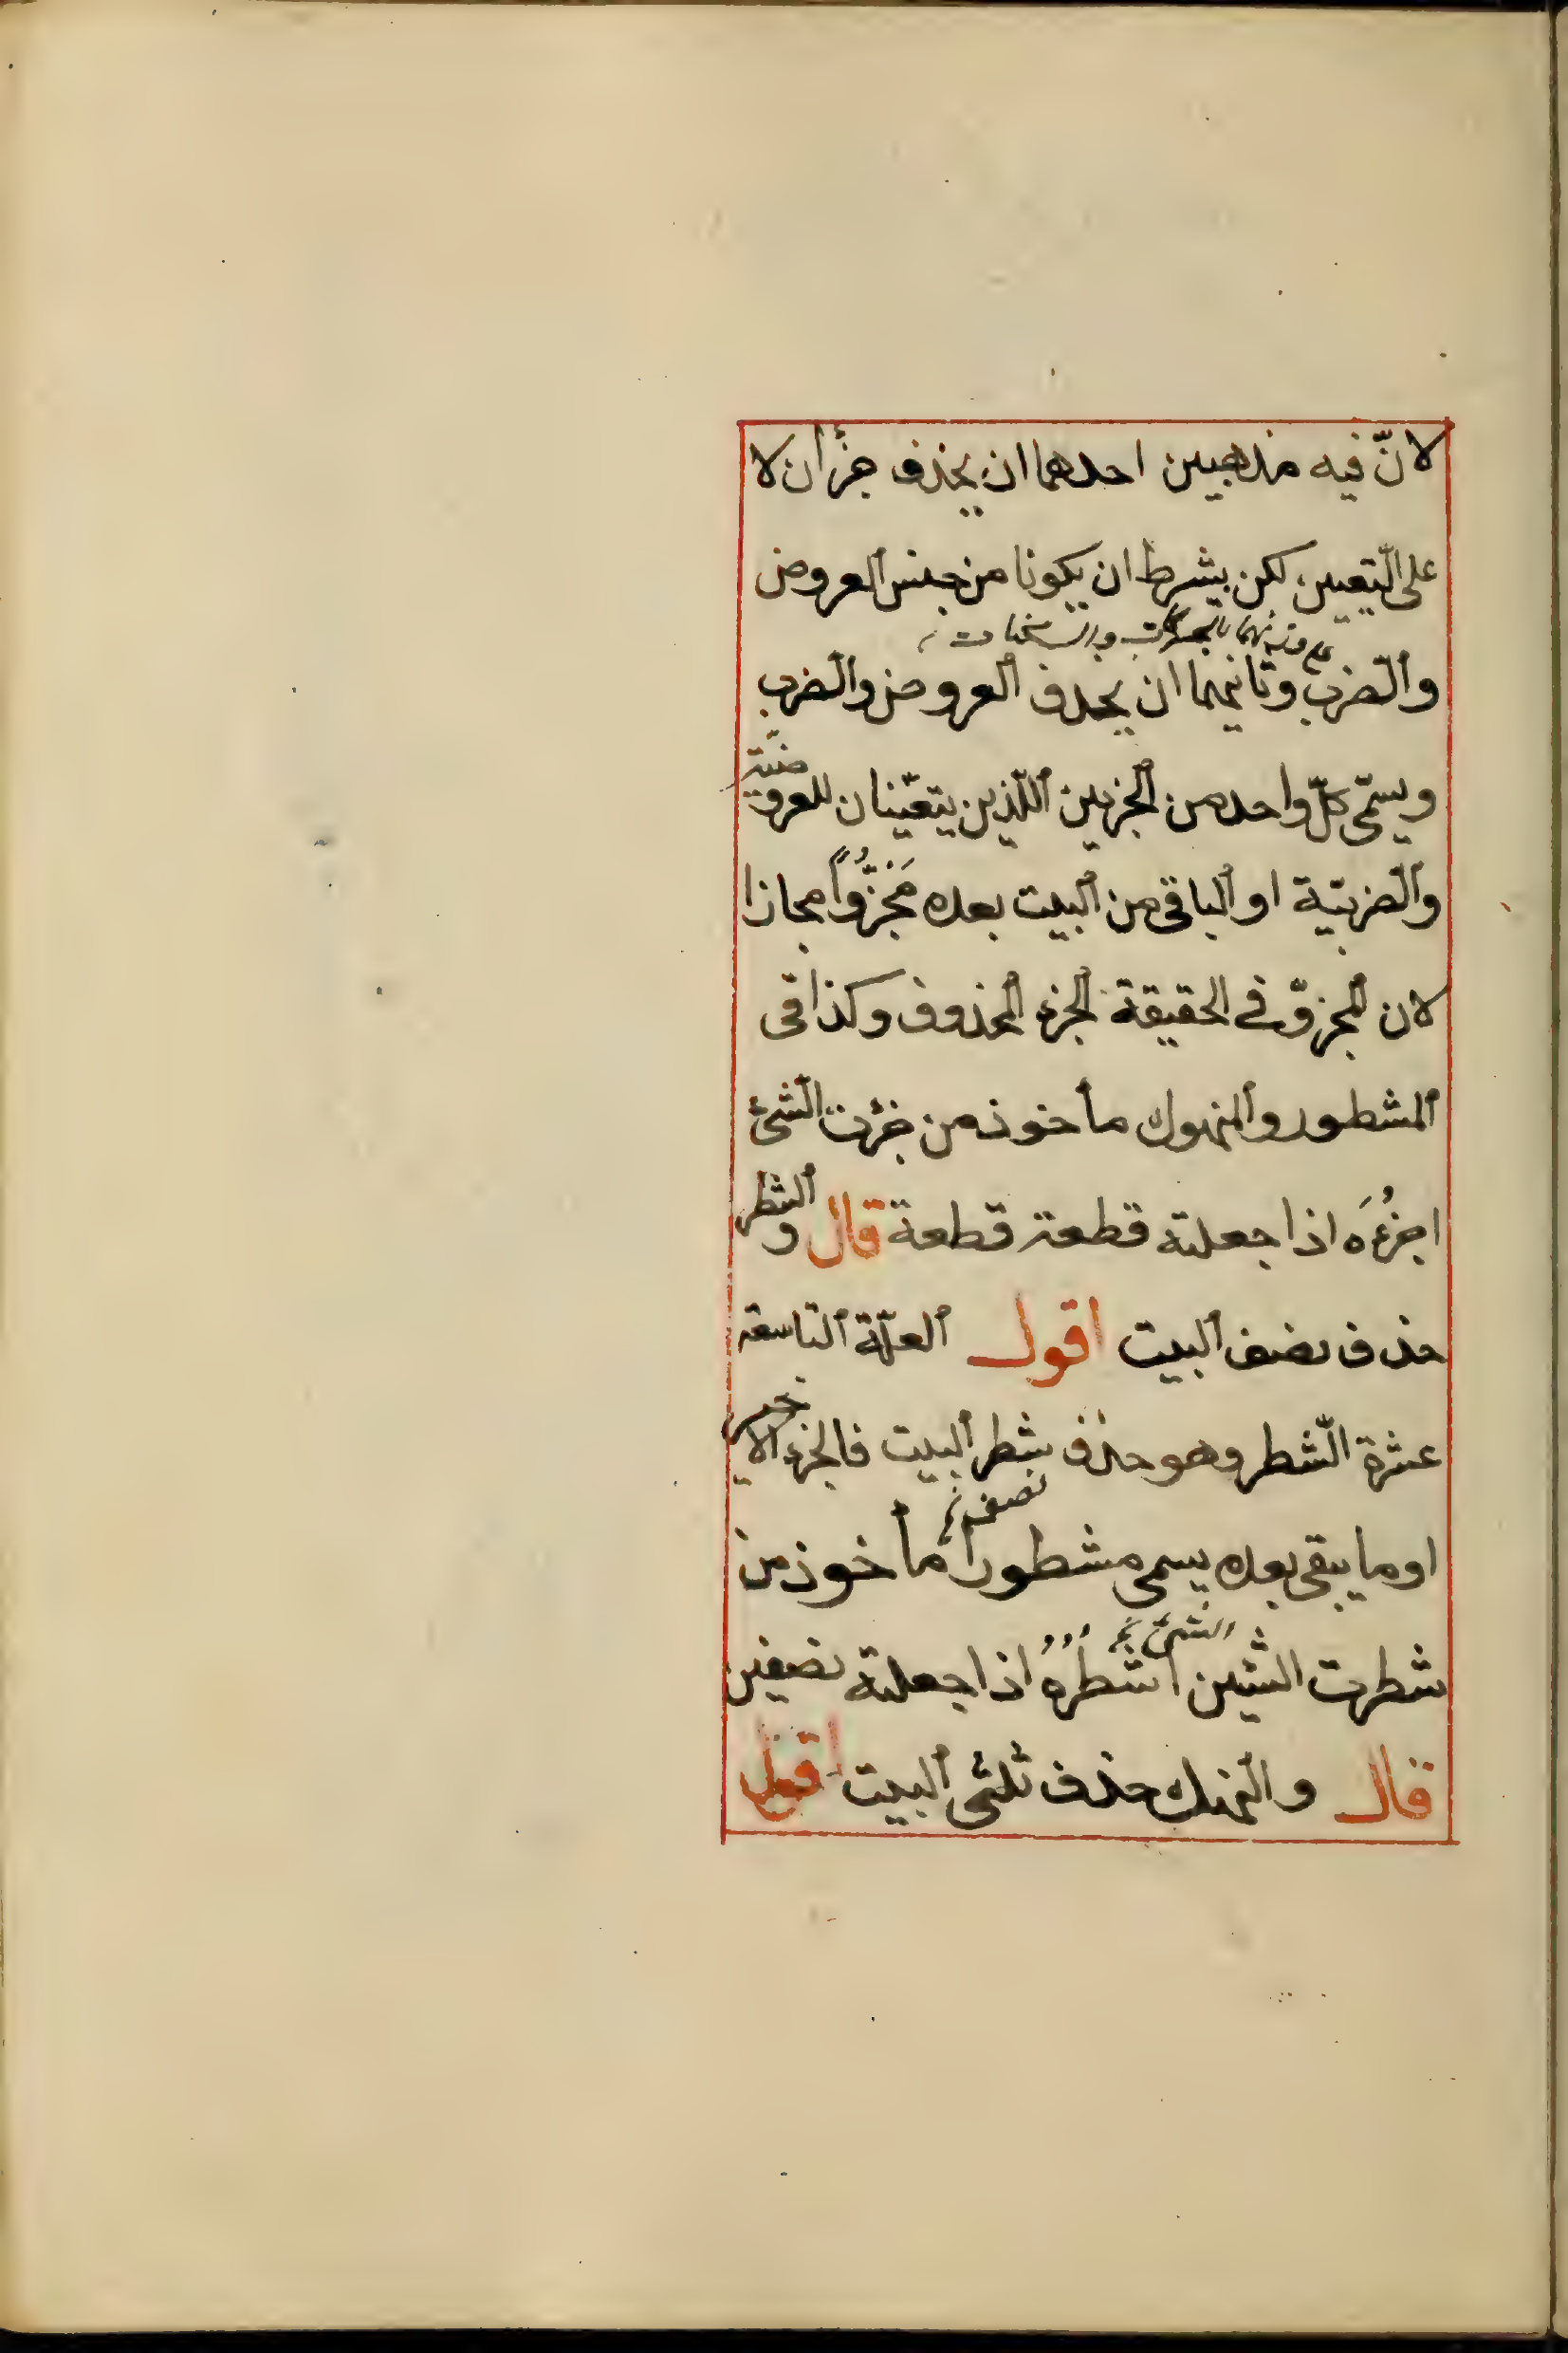 لانّ فيه مذهبين احدهما ان يحذف جزأن لا
على التّعيين لكن بشرط ان يكونا من جنس العروض
على وزنهما بالحركات والسكنات
والضرب وثانيهما ان يحذف العروض والضرب
ويسمّى كلّ واحد من الجزيين اللّذين يتعيّنان للعروضيّة
والضربيّة او الباقى من البيت بعده مَجْزُوًّا مجازا
لان المجزوّ فى الحقيقة الجزء المحذوف وكذا فى
المشطور والمنهوك مأخوذ من جزئت الشئ
اجزُءَه اذا جعلته قطعة قطعة قال والشطر
حذف نصف البيت اقول العلّة التاسعة
عشرة الشّطر وهو حذف شطر البيت فالجزء الاخير
نصف
او ما يبقى بعده يسمى مشطورا مأخوذ من
الشئ
شطرت الشيئن اشطُرُهُ اذا جعلته نصفين
قال والنهك حذف ثلثى البيت اقول